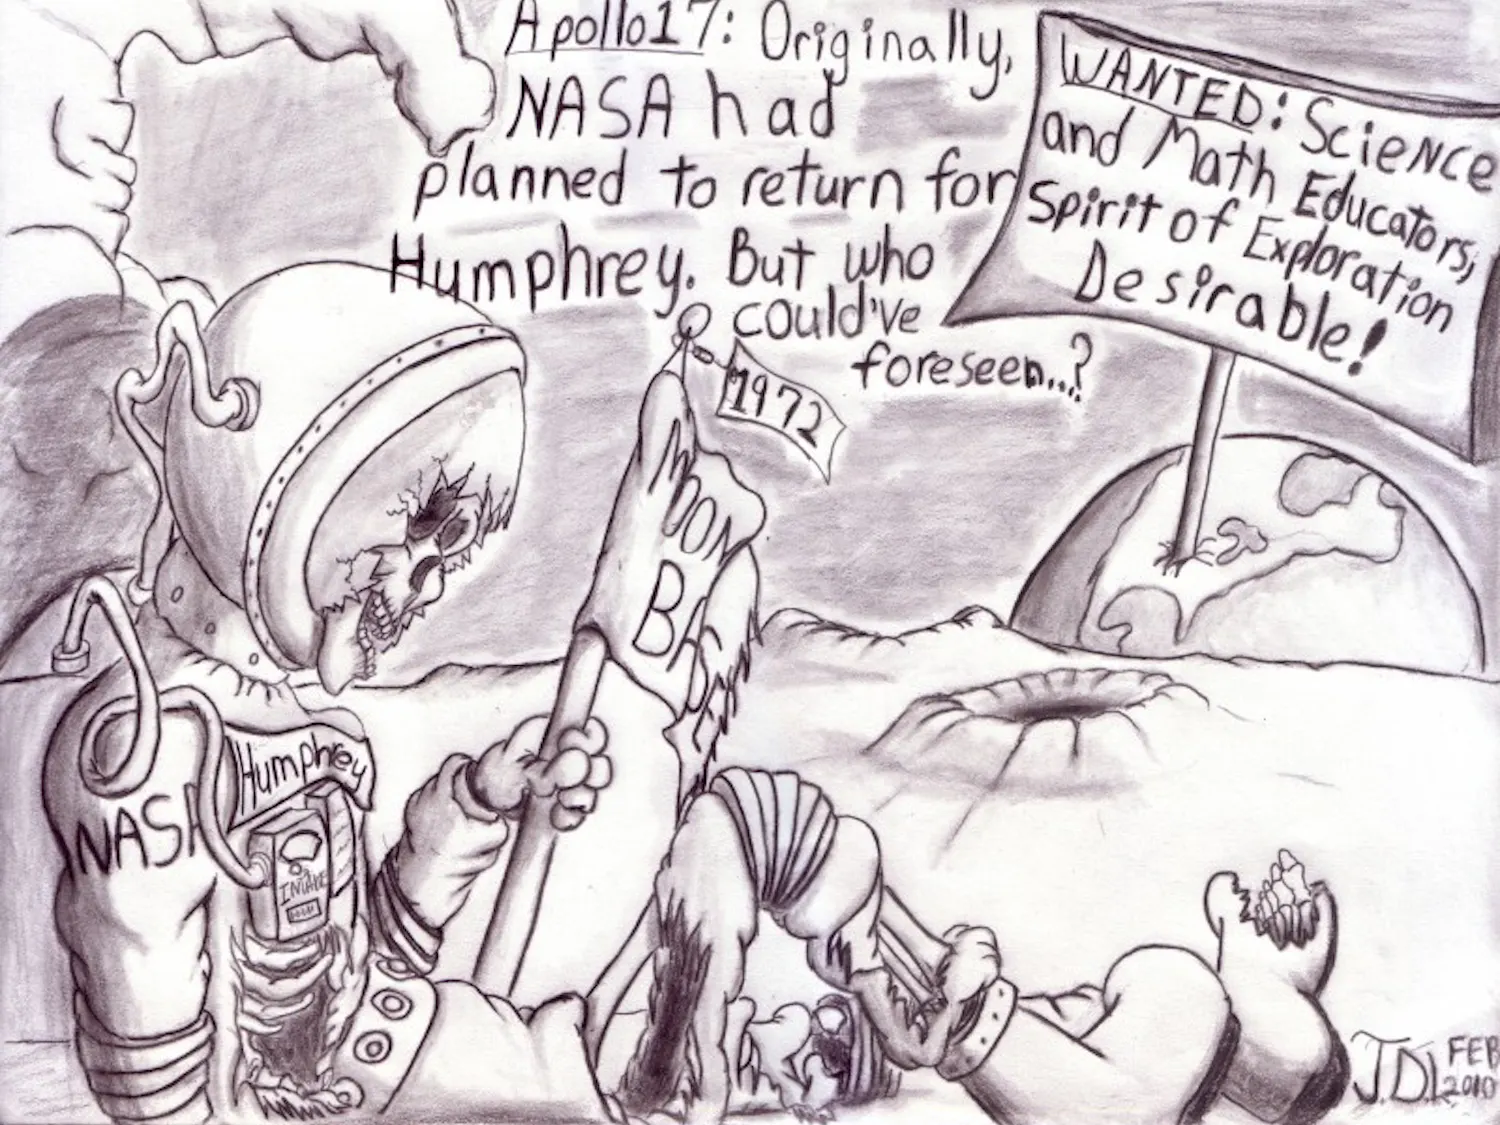 Apollo 17: Originally,
NASA had
planned to return for
Humphrey. But who
could've
foreseen...?
WANTED: Science
and Math Educators,
Spirit of Exploration
Desirable!
1972
MOON
Humphrey
NASA
INTAKE
J.D.
FEB
2010